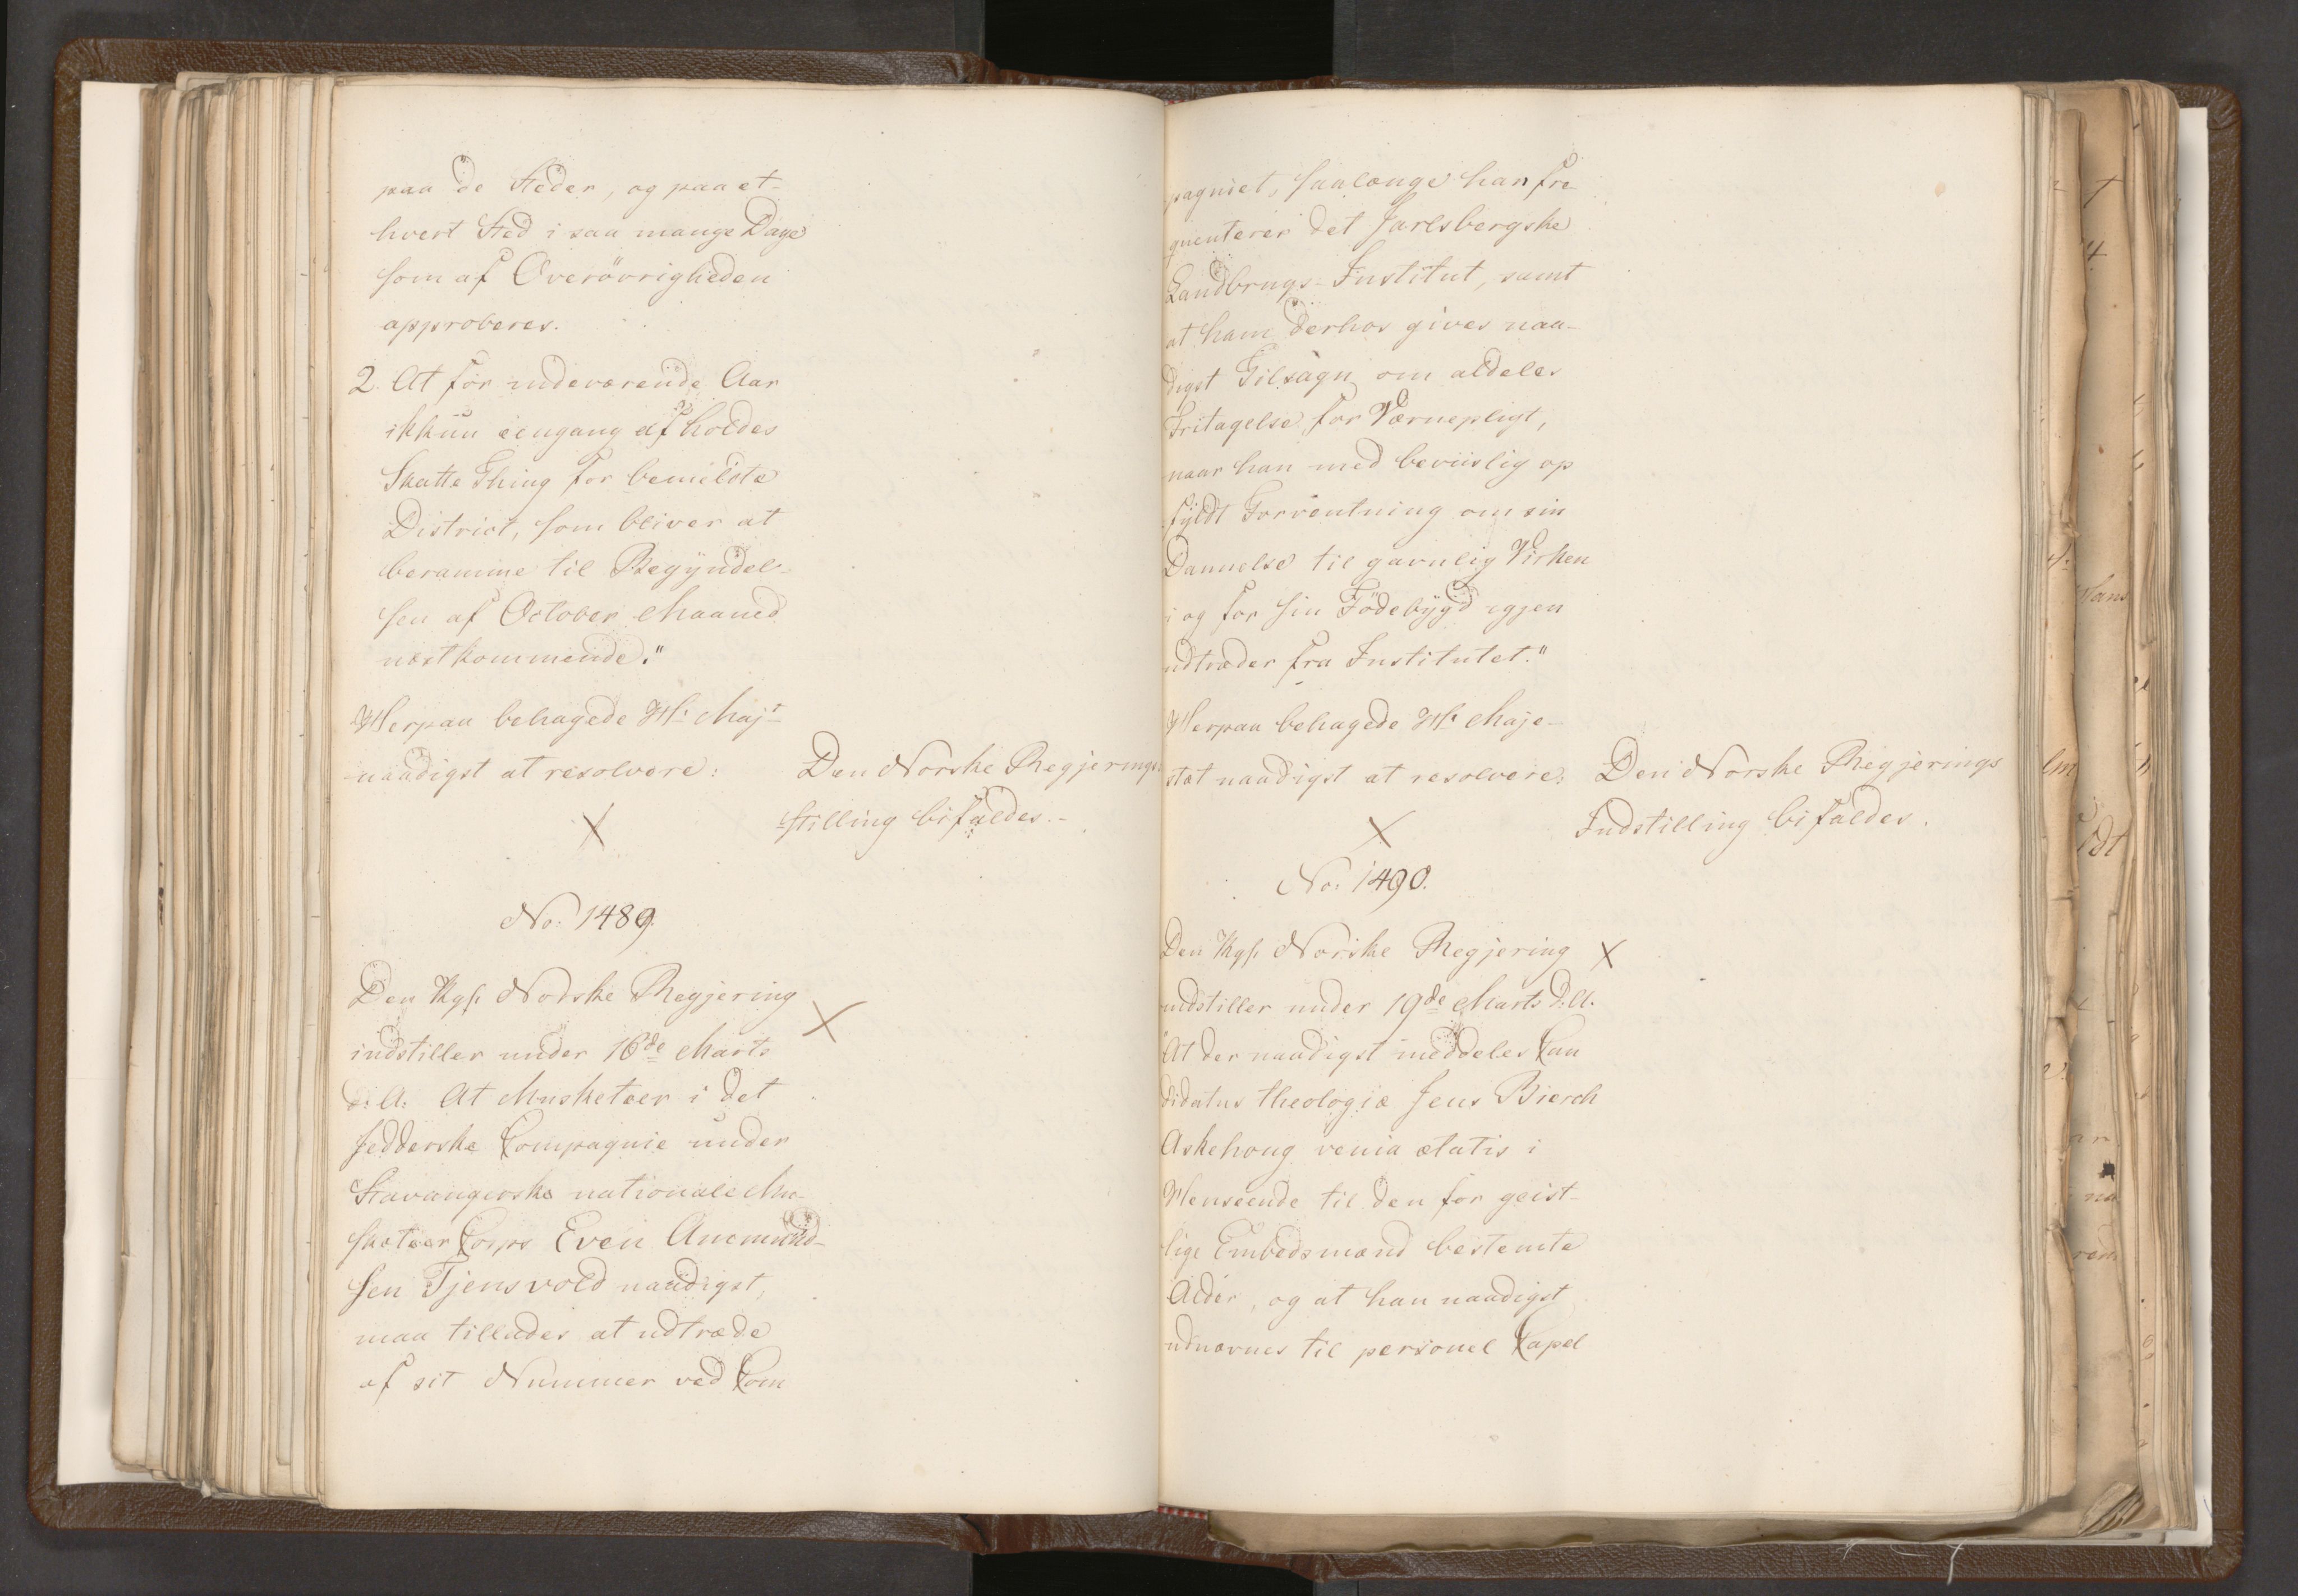 paa de Steder, og paa et-
hvert Sted i saa mange Dage
som af Overövrigheden
approberes.
2. At for indeværende Aar
ikkun eengang afholdes
Skatte Thing for bemeldte
District, som bliver at
beramme til Begÿndel-
sen af October Maaned
næstkommende."
Herpaa behagede Hs. Majt
naadigst at resolvere:
Den Norske Regjerings-
stilling bifaldes.-
No: 1489.
Den Kgl. Nodske Regjering
indstiller under 16de Marts
d: A: At Musketeer i det
Jedderske Compagnie under
Stavangerske nationale Mu-
sketeer Corps Even Anemund-
sen Tjensvold naadigst,
maa tillades at udtræde
af sit Nummer ved Com
pagniet, saalænge han fre-
quenterer det Jarlsbergske
Landbrugs-Institut, samt
at ham derhos gives naa-
digst Tilsagn om aldeles
Fritagelse for Værnepligt,
naar han med beviislig op
fÿldt Forventning om sin
Dannelse til gavnlig Virken
i og for sin Födebÿgd igjen
udtræder fra Institutet."
Herpaa behagede Hs. Maje-
stæt naadigst at resolvere:
Den Norske Regjerings
Indstilling bifaldes.
No: 1490.
Den Kgl. Norske Regjering
indstiller under 19de Marts d: A.
"At der naadigst meddeles Can
didatus theologiæ Jens Bierch
Askehoug venia ætatis i
Henseende til den for geist-
lige Embedsmænd bestemte
Alder, og at han naadigst
udnævnes til personel Capel